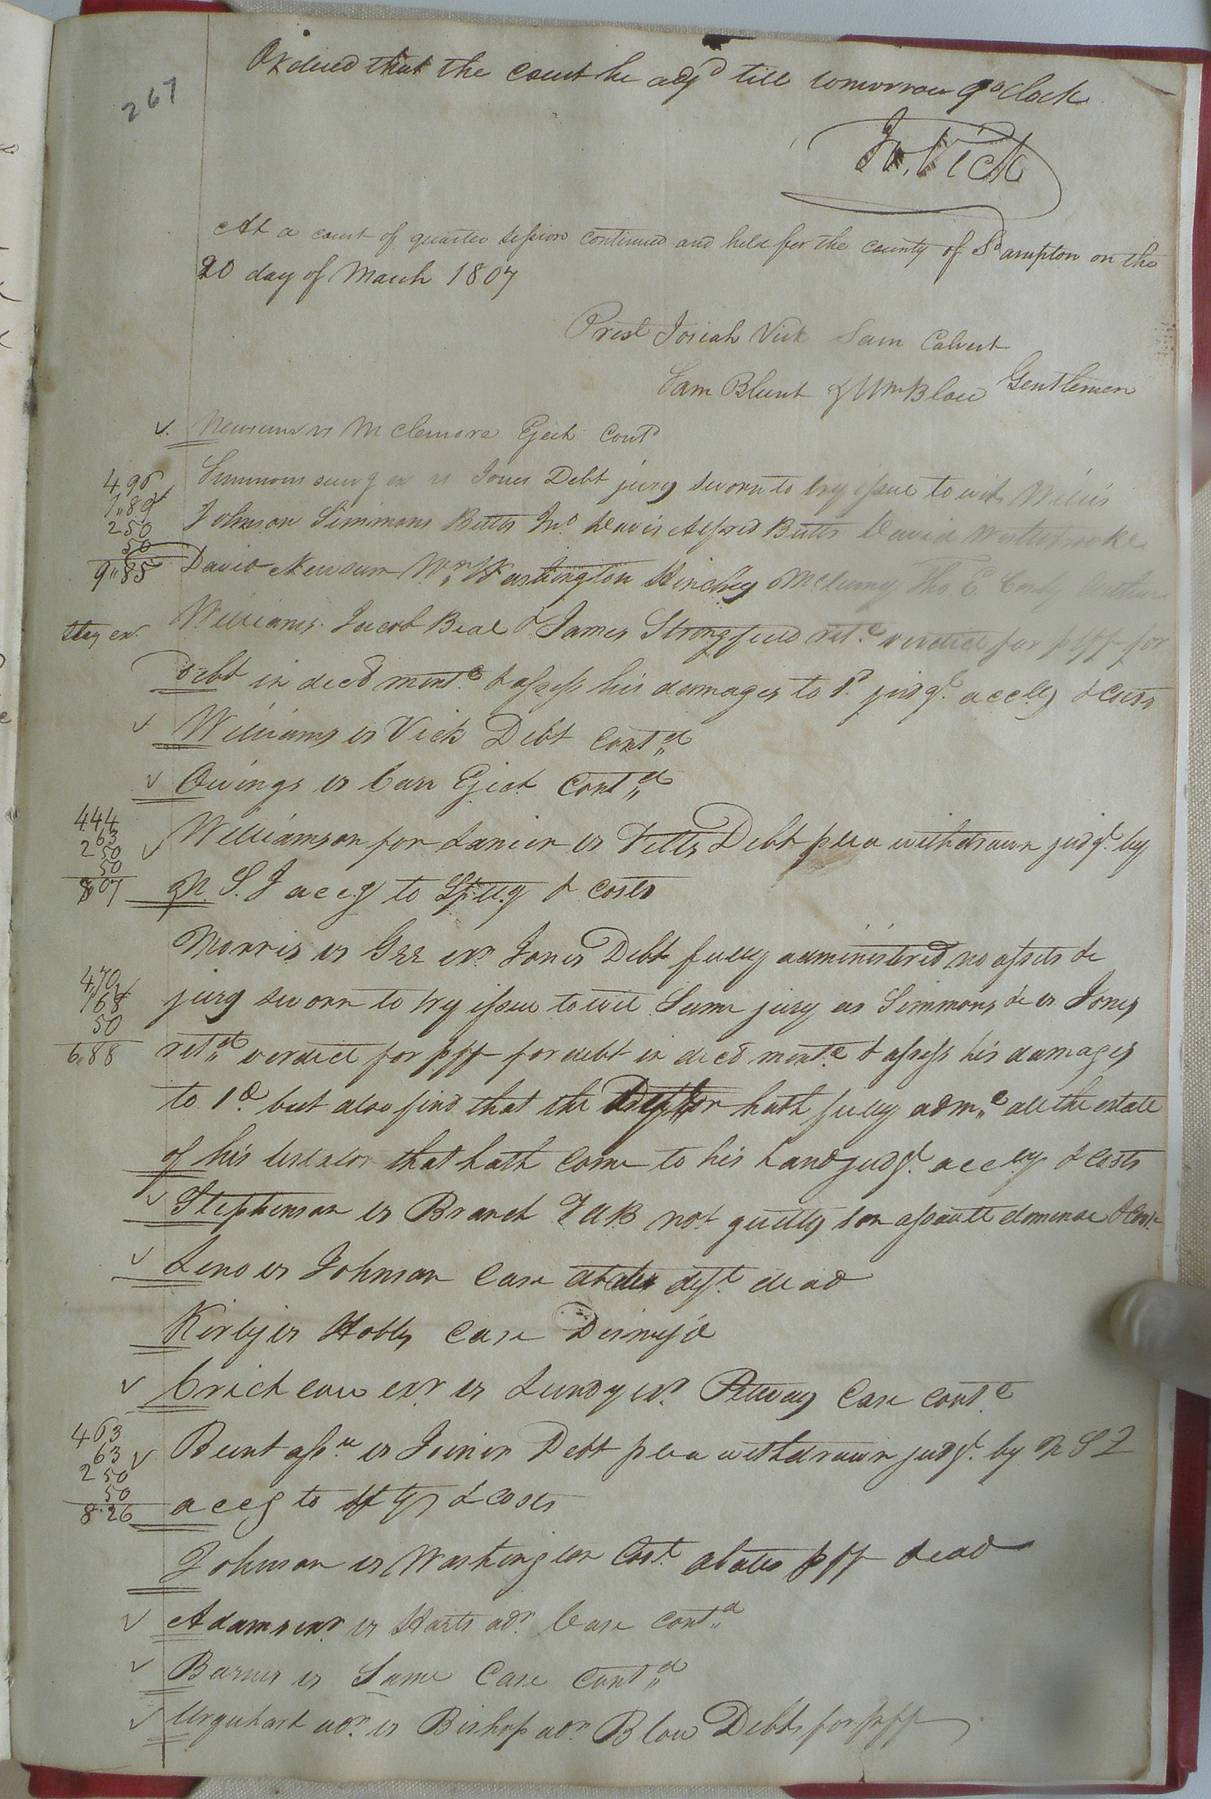 267
Ordered that the court be adjd till tomorrow 9 oClock
Jo. Vick
At a court of quarter session continued and held for the county of Sampton on the
20 day of March 1807
Prest Josiah Vick Sam Calvert
Sam Blunt & Wm Blow Gentlemen
Newsum vs McLemore Eject Contd
Simmons surv g vs Jones Debt jury sworn to try issue to wit
4 96
1"89
2 50
50
9"85
Johnson Simmons Butts Jno Davis Butts David Westbrooke
David Newsum Wm Washington Kinchy Tho E.
Williams Jacob Beal & James Strongfield retd verdict for plff for
Stay ex.
debt in decd ment.d & assess his damages to 1d judgt. accly & Costs
Williams vs Vick Debt Contd
Owings vs Carr Eject Contd
Williamson for Lanier vs Fitts Debt plea withdrawn judgt. by
4.44
63
2 50
50
8"07
N. S. I accg to & costs
Morris vs Gee exr Jones Debt fully administered, no assets &c
jury sworn to try issue to wit Same jury as Simmons &c vs Jones
4,70
1 68
50
6,88
retd verdict for plff for debt in decd ment.d & assess his damages
to 1d. but also find that the hath fully adm.d all the estate
of his testator that hath come to his hand judgt. accly & costs
Stephenson vs Branch T A B not guilty son assault demesne & Contd
Leno vs Johnson Case abates deft. dead
Kirby vs Hobbs Case Dismisd
Crichlow exr vs Lundy exr. Pettway Case contd
Blunt asse vs Joiner Debt plea withdrawn judgt. by N S I
4 63
63
2 50
50
8.26
accg to & costs
Johnson vs Washington Cost. abates plff dead
Adams exr. vs Harts adr. Case contd
Barnes vs Same Case Contd
Urquhart adr. vs Bishop adr. Blow Debts for plff